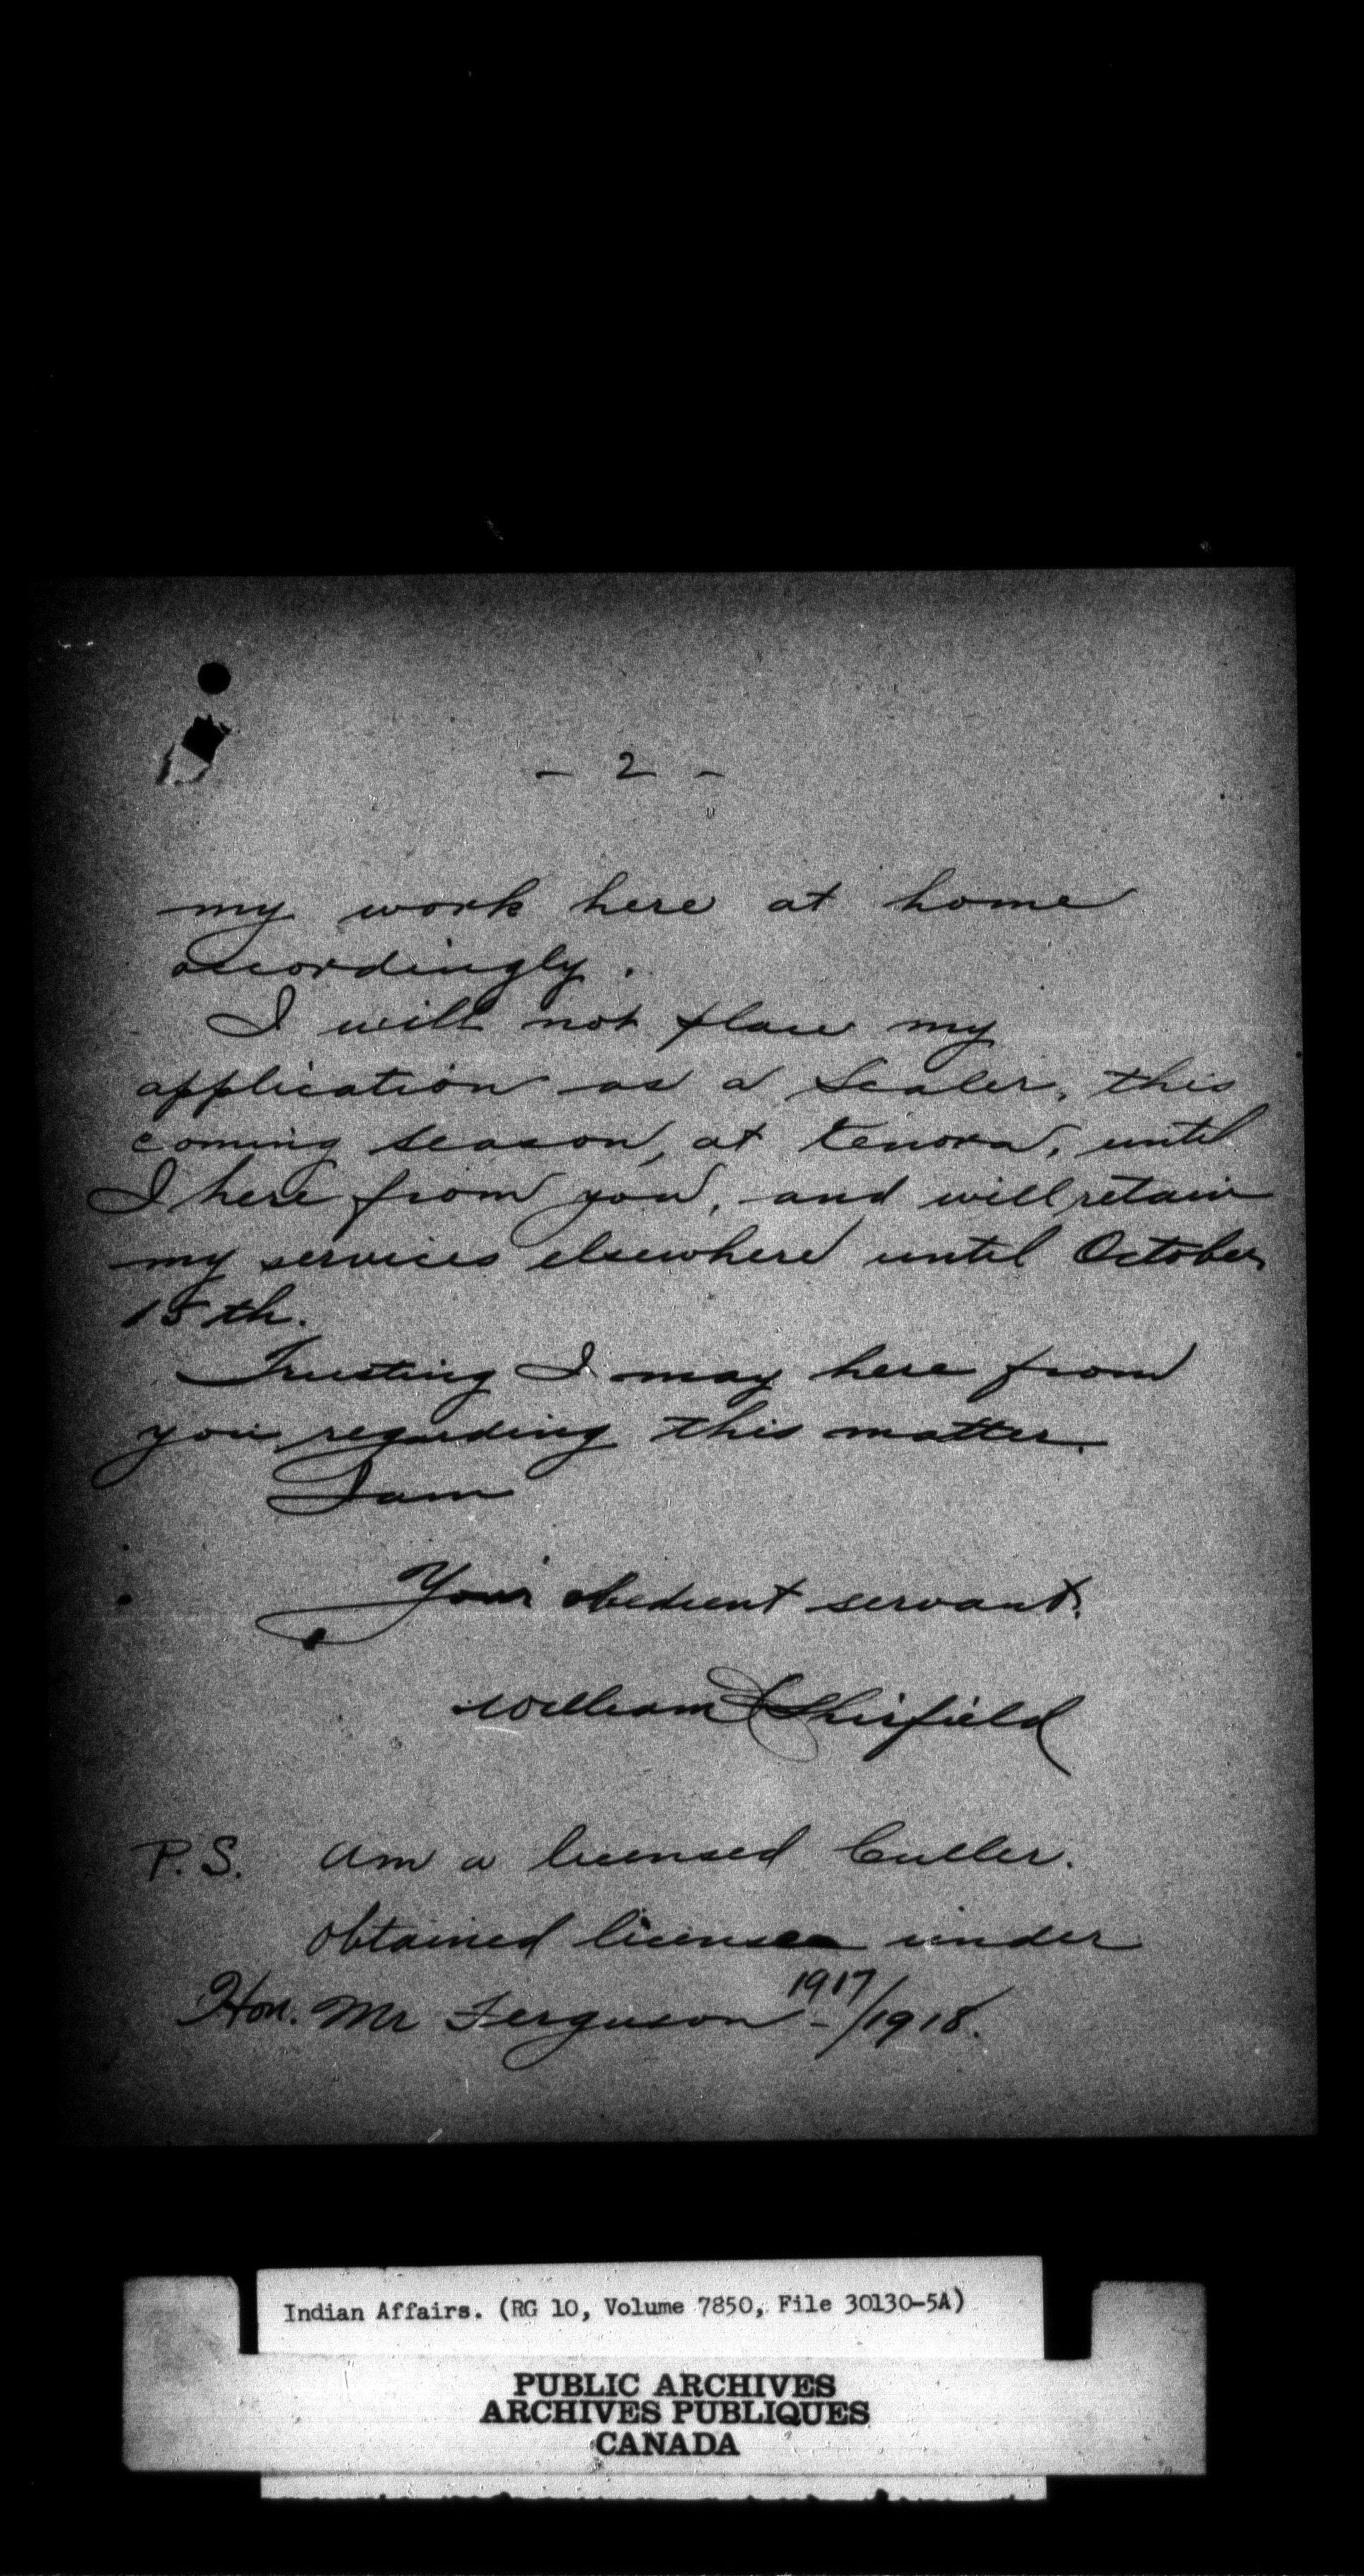 - 2 -
my work here at home
accordingly.
I will not place my
application as a Scaler, this
coming season, at Kenora, until
I here from you, and will retain
my services elsewhere until October
15th.
Trusting I may here from
you regarding this matter.
I am
Your obedient servant.
William Shirfield
P.S. Am a licensed Culler.
Obtained license under
Hon. Mr Ferguson - 1917/1918.
Indian Affairs. (RG 10, Volume 7850, File 30130-5A)
PUBLIC ARCHIVES
ARCHIVES PUBLIQUES
CANADA